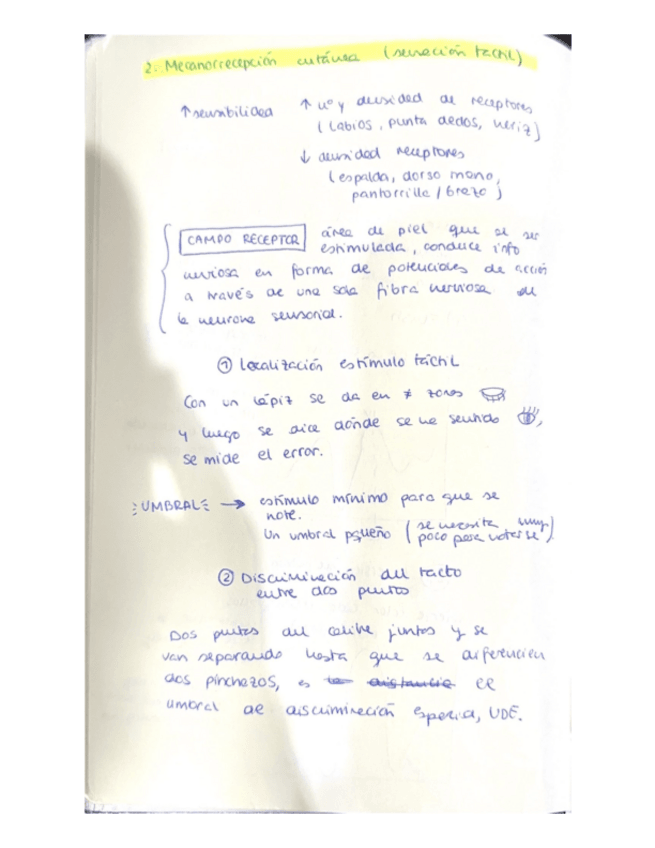 2. Mecanorrecepción cutánea (sensación táctil)
↑ sensibilidad ↑ nº y densidad de receptores
(labios, punta dedos, nariz)
↓ densidad receptores
(espalda, dorso mano,
pantorrilla / brazo)
CAMPO RECEPTOR área de piel que si se
estimulada, conduce info
nerviosa en forma de potenciales de acción
a través de una sola fibra nerviosa de
la neurona sensorial.
① Localización estímulo táctil
Con un lápiz se da en ≠ zonas
y luego se dice dónde se ha sentido,
se mide el error.
UMBRAL → estímulo mínimo para que se
note.
Un umbral pqueño (se necesita muy
poco para notarse)
② Discriminación del tacto
entre dos puntos
Dos puntas del calibre juntos y se
van separando hasta que se diferencien
dos pinchazos, es la distancia el
umbral de discriminación espacial, UDE.